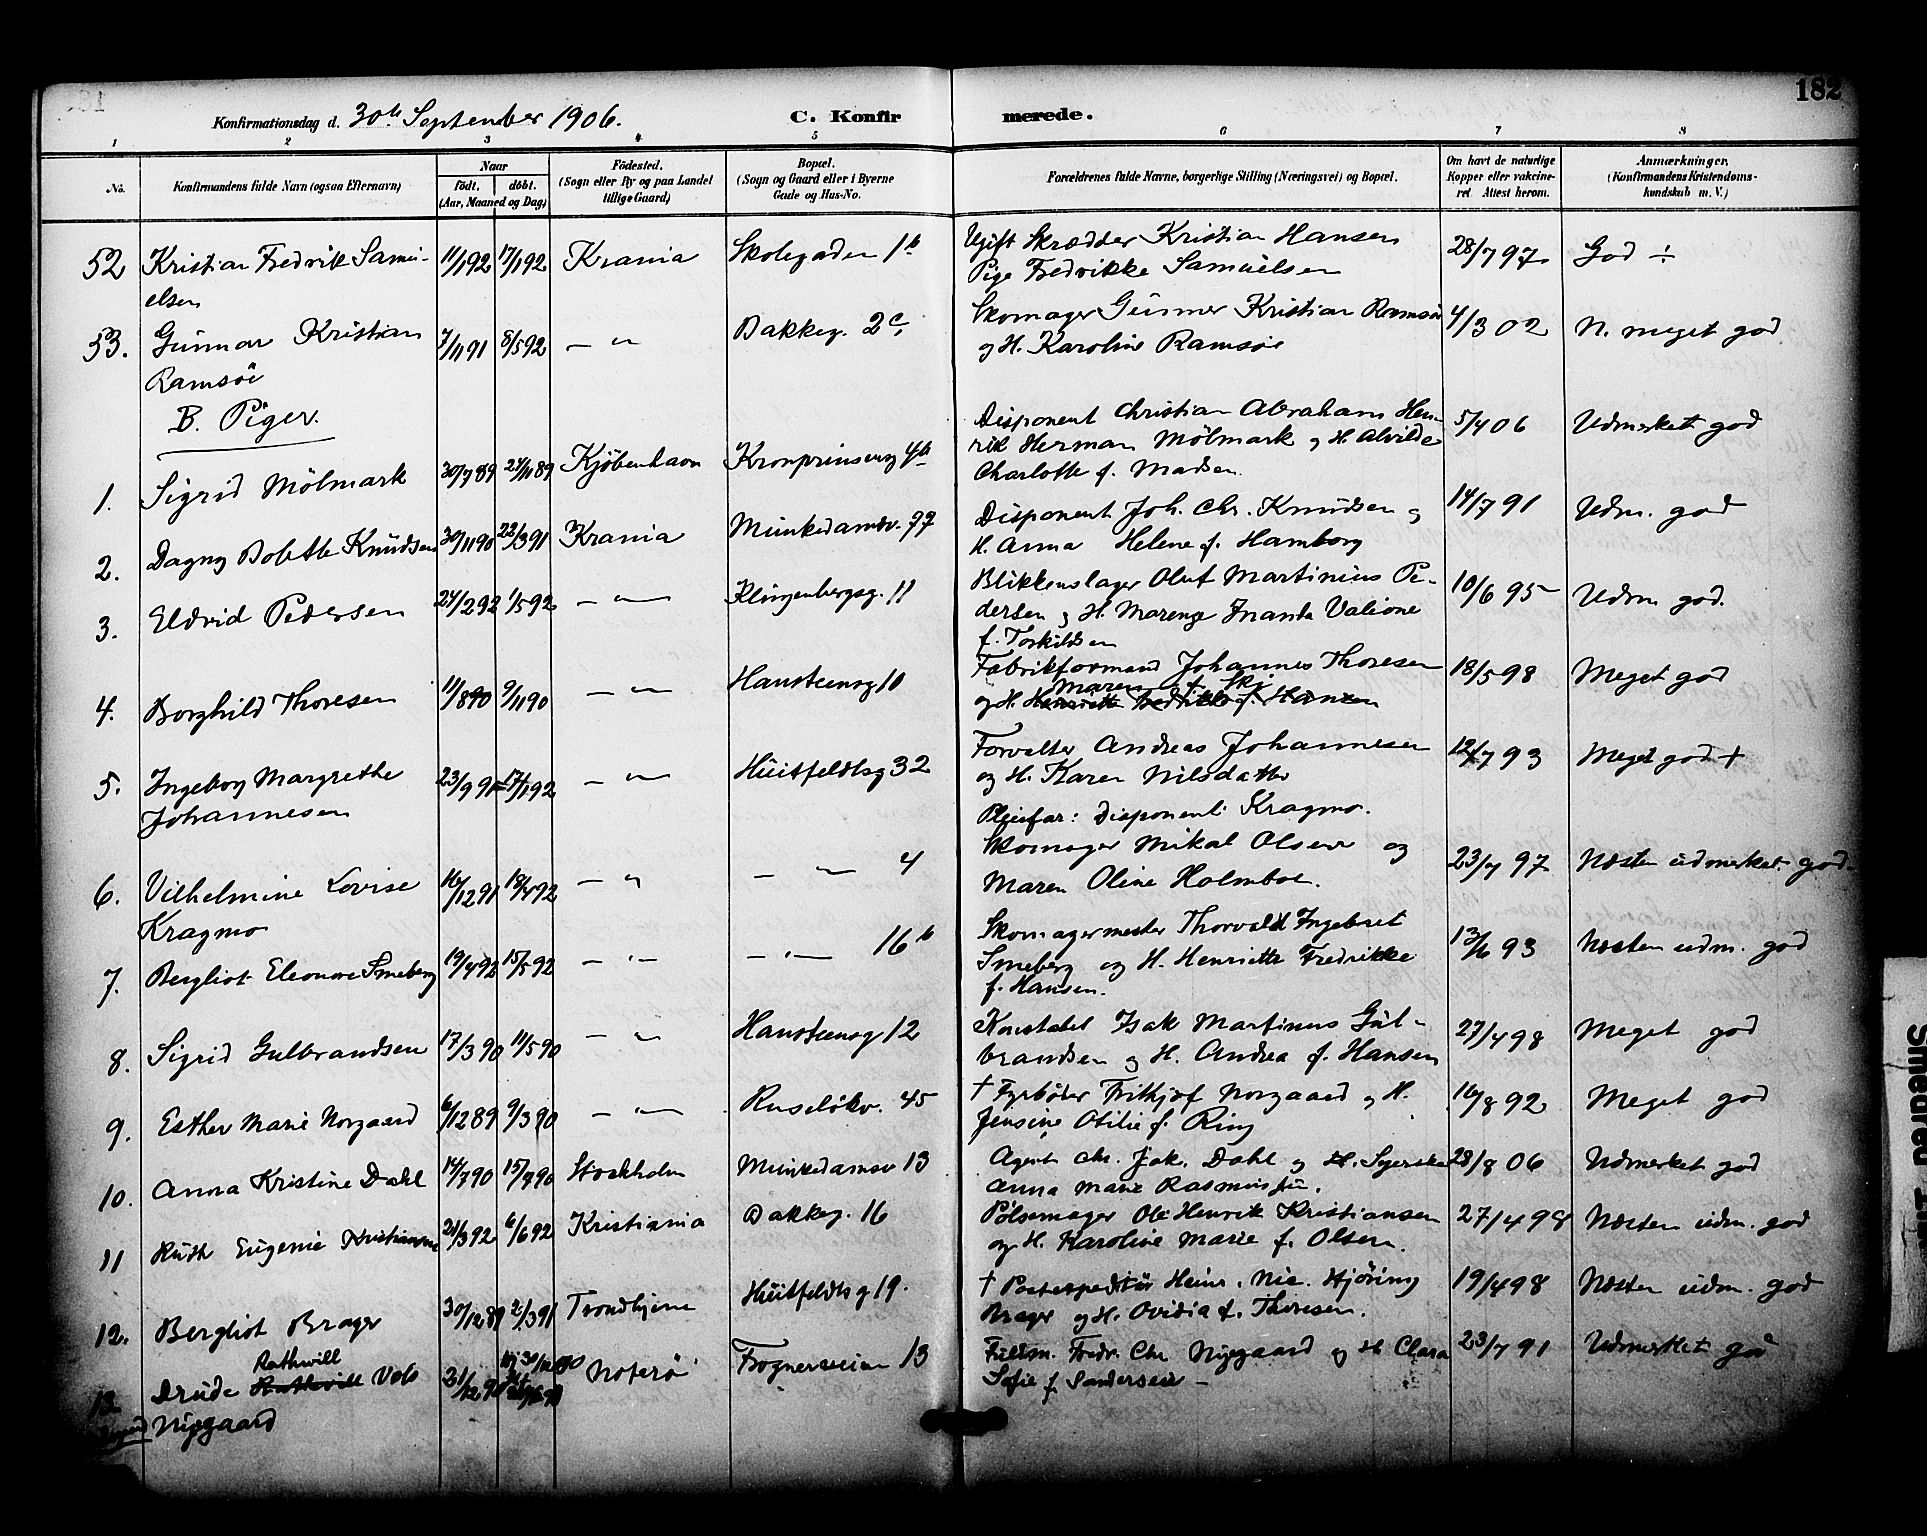 182
Konfirmationsdag d. 30te September 1906. C. Konfirmerede.
1 2 3 4 5 6 7 8
No. Konfirmandens fulde Navn (ogsaa Efternavn) Naar født. døbt. (Aar, Maaned og Dag) Fødested. (Sogn eller By og paa Landet tillige Gaard) Bopæl. (Sogn og Gaard eller i Byerne Gade og Hus-No. Forældrenes fulde Navne, borgerlige Stilling (Næringsvei) og Bopæl. Om havt de naturlige Kopper eller vakcineret. Attest herom. Anmærkninger, (Konfirmandens Kristendomskundskab m. V.)
52 Kristian Fredrik Samuelsen 11/1 92 17/1 92 Krania Skolegaden 1b Ugift Skrædder Kristian Hansen Pige Fredrikke Samuelsen 28/7 97 God ÷
53. Gunnar Kristian Ramsöe 7/11 91 8/5 92 — " — Bakkeg. 2c, Skomager Gunner Kristian Ramsöe og H. Karoline Ramsöe 4/3 02 N. meget god
B. Piger.
1. Sigrid Mölmark 30/7 89 24/11 89 Kjöbenhavn Kronprinsensg 4b Disponent Christian Abraham Henrik Herman Mölmark og H Alvilde Charlotte f. Madsen. 5/4 06 Udmerket god
2. Dagny Bolette Knudsen 30/11 90 22/3 91 Krania Munkedamsv. 77 Disponent Joh. Chr. Knudsen og H. Anna Helene f. Hamborg 14/7 91 Udm. god
3. Eldrid Pedersen 24/2 92 1/5 92 — " — Klingenbergsg. 11 Blikkenslager Oluf Martinius Pedersen og H. Marenze Inanda Valione f. Torkildsen 10/6 95 Udm god.
4. Borghild Thoresen 11/8 90 9/11 90 — " — Hansteensg 10 Fabrikformand Johannes Thoresen og H. Maren f. Skj Henriette Fredrikke f. Hansen 18/5 98 Meget god
5. Ingeborg Margrethe Johannesen 23/9 91 17/1 92 — " — Huitfeldtsg 32 Forvalter Andreas Johannesen og H. Karen Nilsdatter 12/7 93 Meget god +
6. Vilhelmine Lovise Kragmo 16/12 91 18/4 92 — " — — " — 4 Pleiefar: Disponent Kragmo. Skomager Mikal Olsen og Maren Oline Holmboe. 23/7 97 Næsten udmerket god.
7. Bergliot Eleonore Smeberg 19/4 92 15/5 92 — " — — " — 16b Skomagermester Thorvald Ingebret Smeberg og H. Henriette Fredrikke f. Hansen. 13/6 93 Næsten udm. god
8. Sigrid Gulbrandsen 17/3 90 11/5 90 — " — Hansteensg 12 Konstabel Isak Martinus Gulbrandsen og H. Andrea f. Hansen 27/4 98 Meget god
9. Esther Marie Norgaard 6/12 89 9/3 90 — " — Ruselökv. 45 † Fyrböter Frithjof Norgaard og H. Jensine Otilie f. Ring 16/8 92 Meget god
10. Anna Kristine Dahl 14/7 90 15/9 90 Stockholm Munkedamsv 13 Agent Chr. Jak. Dahl og H. Syerske Anna Marie Rasmussen. 28/8 06 Udmerket god
11 Ruth Eugenie Kristiansen 21/3 92 6/6 92 Kristiania Bakkeg. 16 Pölsemager Ole Henrik Kristiansen og H. Karoline Marie f. Olsen. 27/4 98 Næsten udm. god
12. Bergliot Brager 30/12 89 2/3 91 Trondhjem Huitfeldtsg 19. † Postexpeditör Heinr. Nic. Hjöring Brager og H. Ovidia f. Thoresen. 19/4 98 Næsten udm. god
13 Drude Rathwill Vebo Nygaard 21/12 90 Noterö Frognerveien 13 Fuldm. Fredr. Chr Nygaard og H Clara Sofie f Sanderseie — 23/7 91 Udmerket god